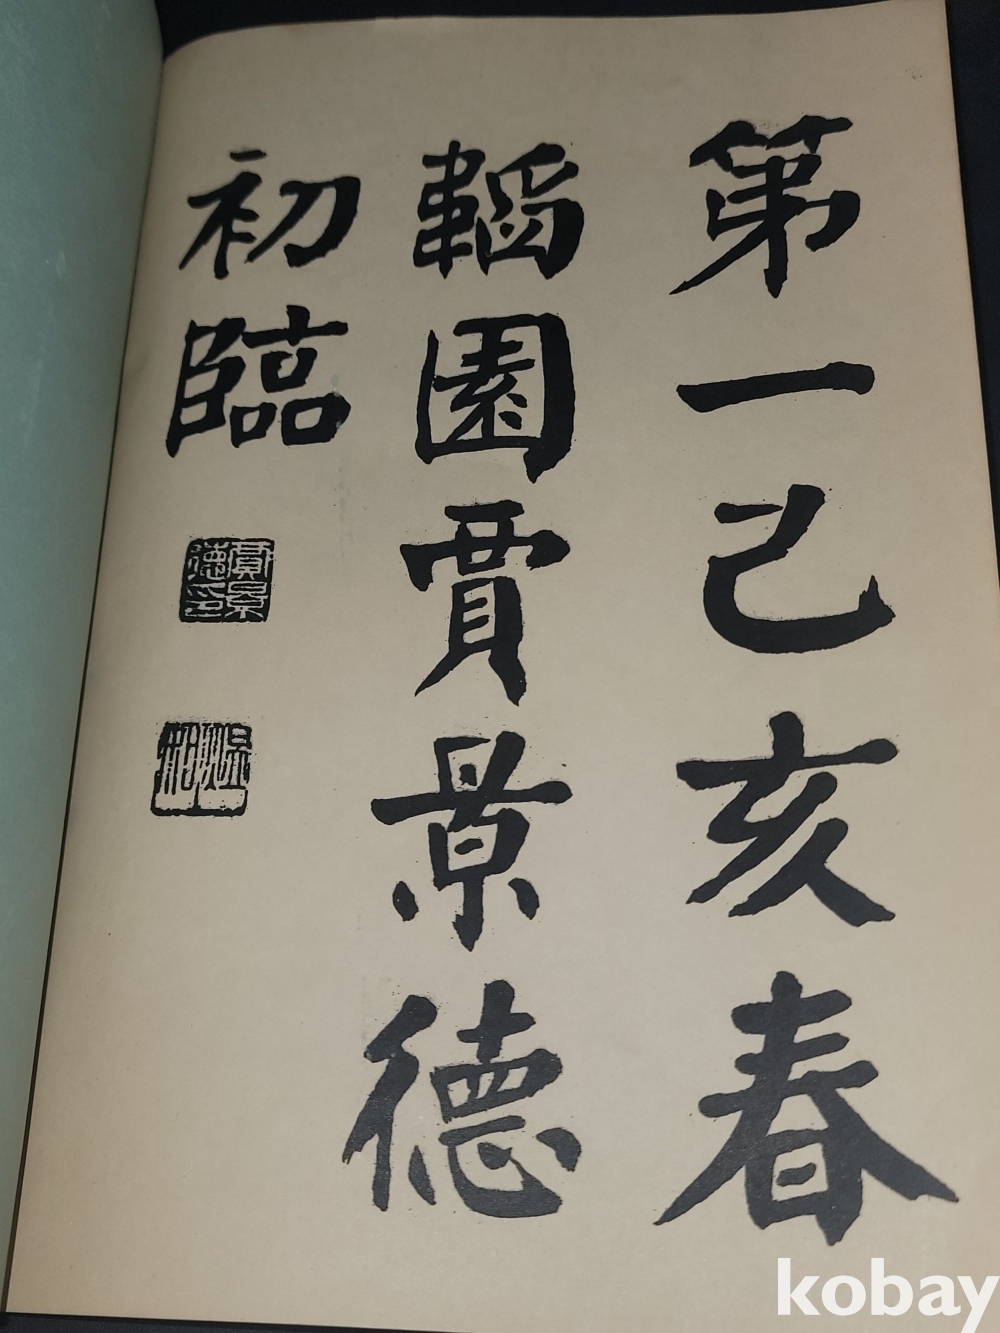 第一己亥春
韜園賈景德
初臨
賈景德印
kobay